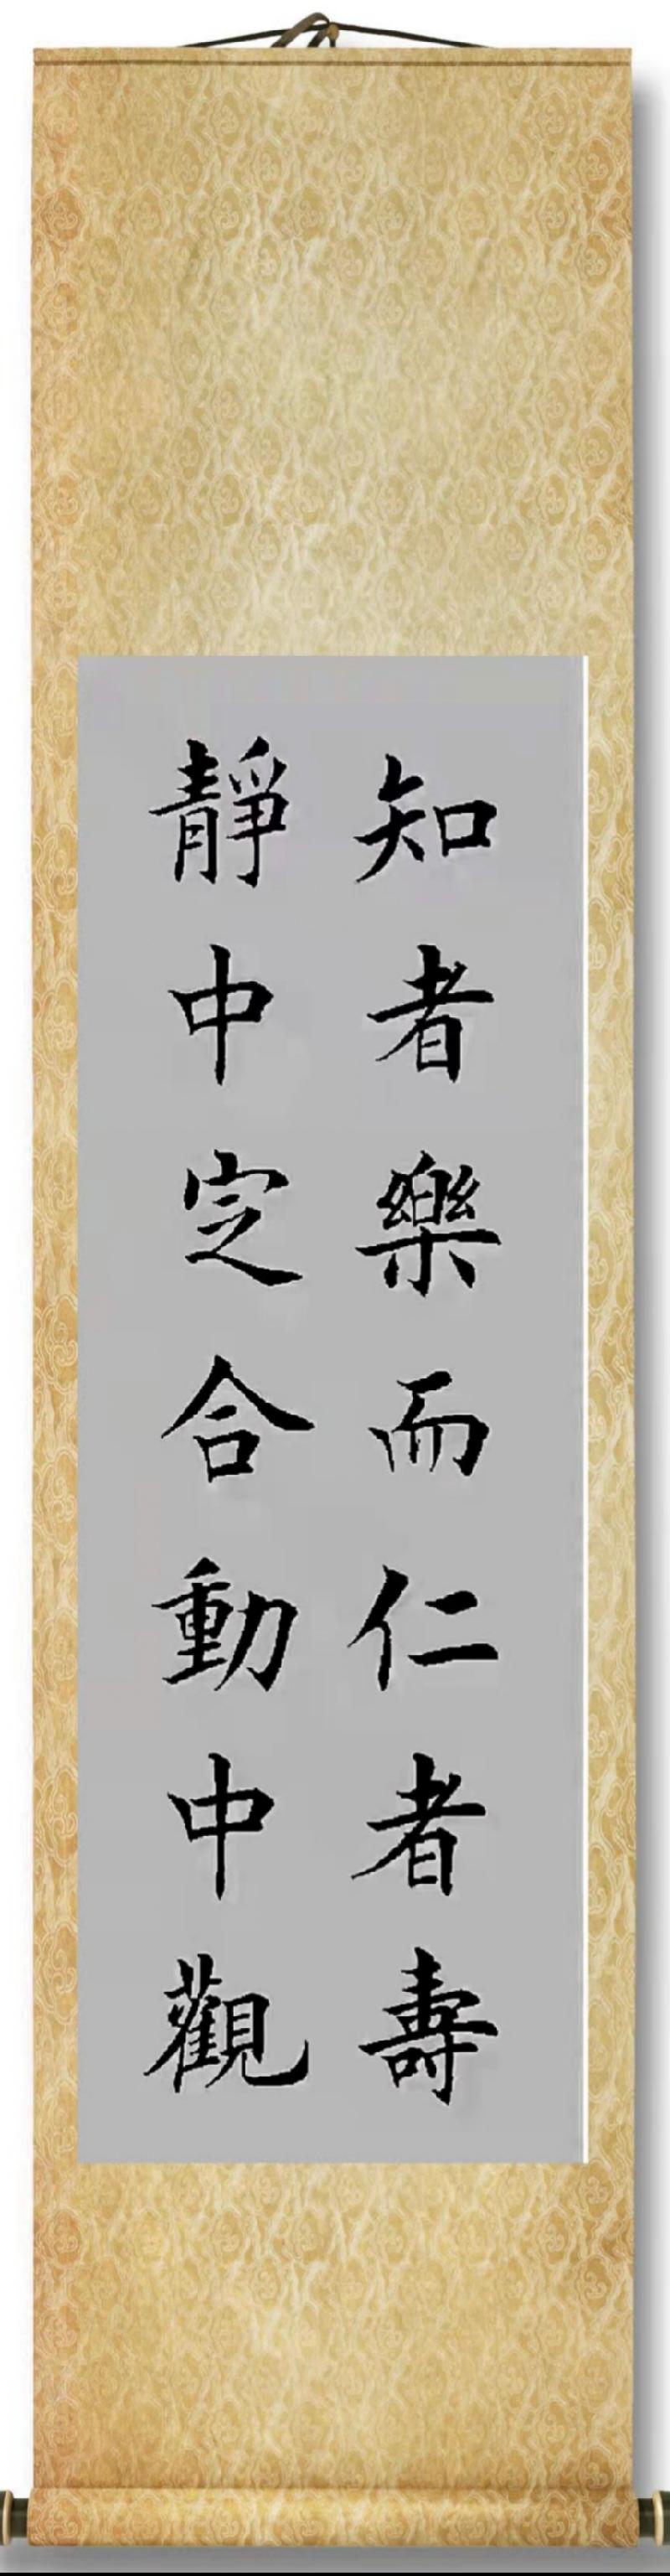 知者樂而仁者壽
靜中定合動中觀